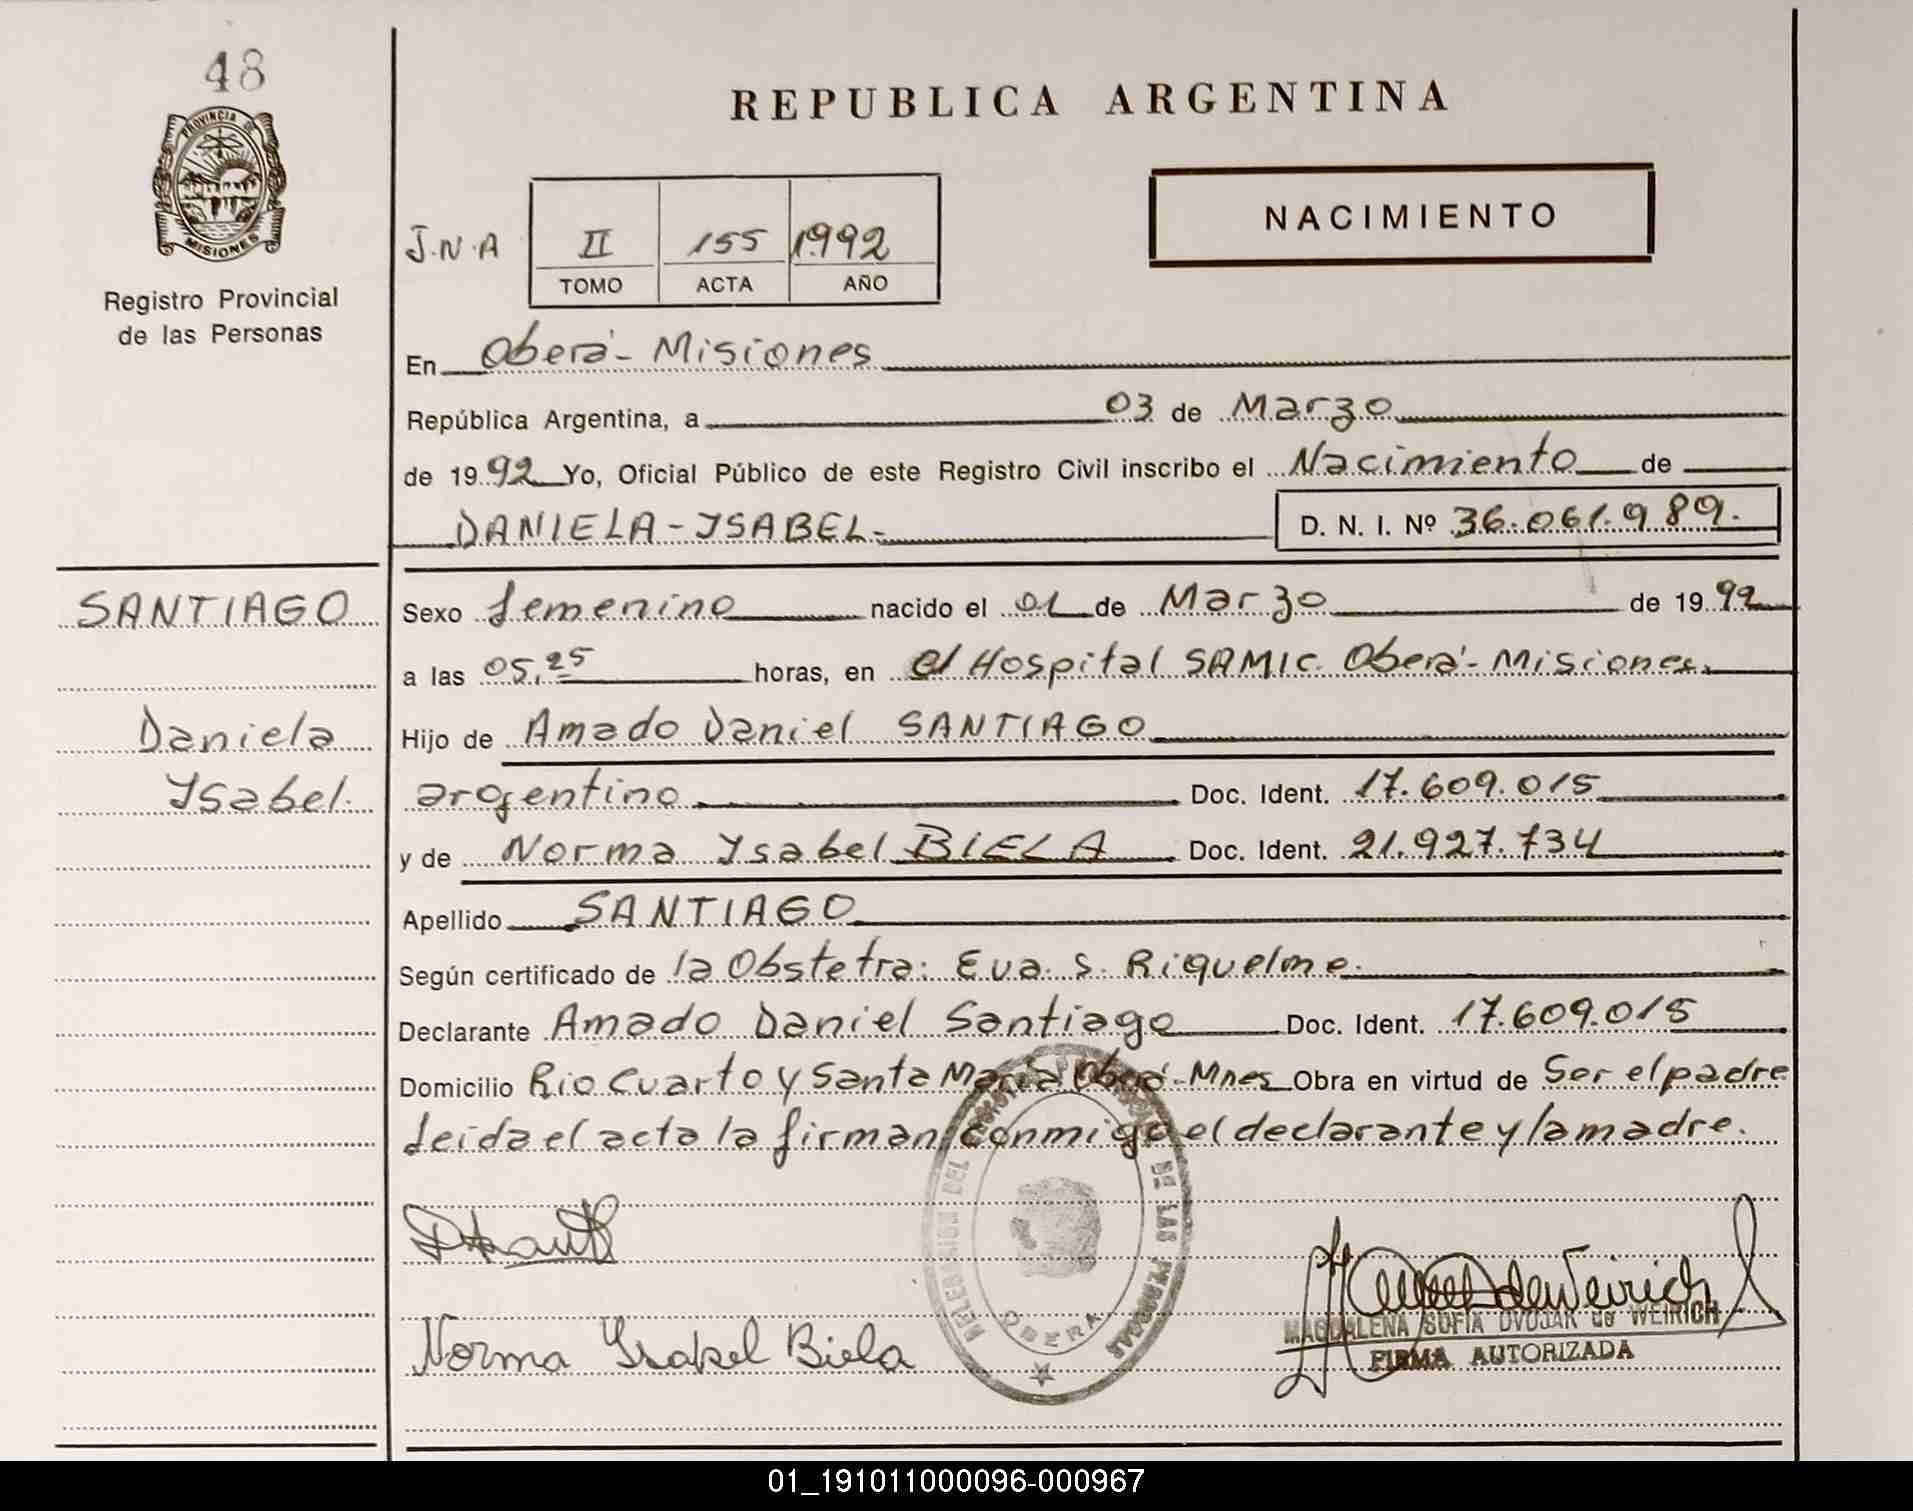 48
PROVINCIA DE
MISIONES
Registro Provincial
de las Personas
REPUBLICA ARGENTINA
NACIMIENTO
J.N.A II 155 1992
TOMO ACTA AÑO
En Oberá - Misiones
República Argentina, a 03 de Marzo
de 1992 Yo, Oficial Público de este Registro Civil inscribo el Nacimiento de
DANIELA - YSABEL.
D. N. I. Nº 36.061.989.
SANTIAGO
Daniela
Ysabel.
Sexo femenino nacido el 01 de Marzo de 1992
a las 05,25 horas, en el Hospital SAMIC. Oberá - Misiones.
Hijo de Amado Daniel SANTIAGO
argentino Doc. Ident. 17.609.015
y de Norma Ysabel BIELA Doc. Ident. 21.927.734
Apellido SANTIAGO
Según certificado de la Obstetra: Eva. S. Riquelme.
Declarante Amado Daniel Santiago Doc. Ident. 17.609.015
Domicilio Rio Cuarto y Santa Maria Oberá - Mnes Obra en virtud de Ser el padre
Leida el acta la firman conmigo el declarante y la madre.
DE LAS PERSONAS
OBERA
Norma Ysabel Biela
MAGDALENA SOFIA DVOJAK de WEIRICH
FIRMA AUTORIZADA
01_191011000096-000967